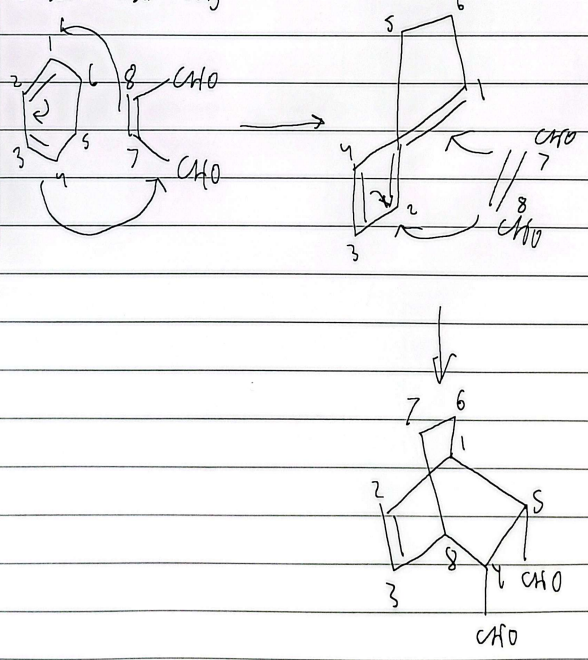 1
2
6
3
5
4
8
7
CHO
CHO
5
6
1
4
2
3
CHO
7
8
CHO
7
6
1
2
5
3
8
4
CHO
CHO